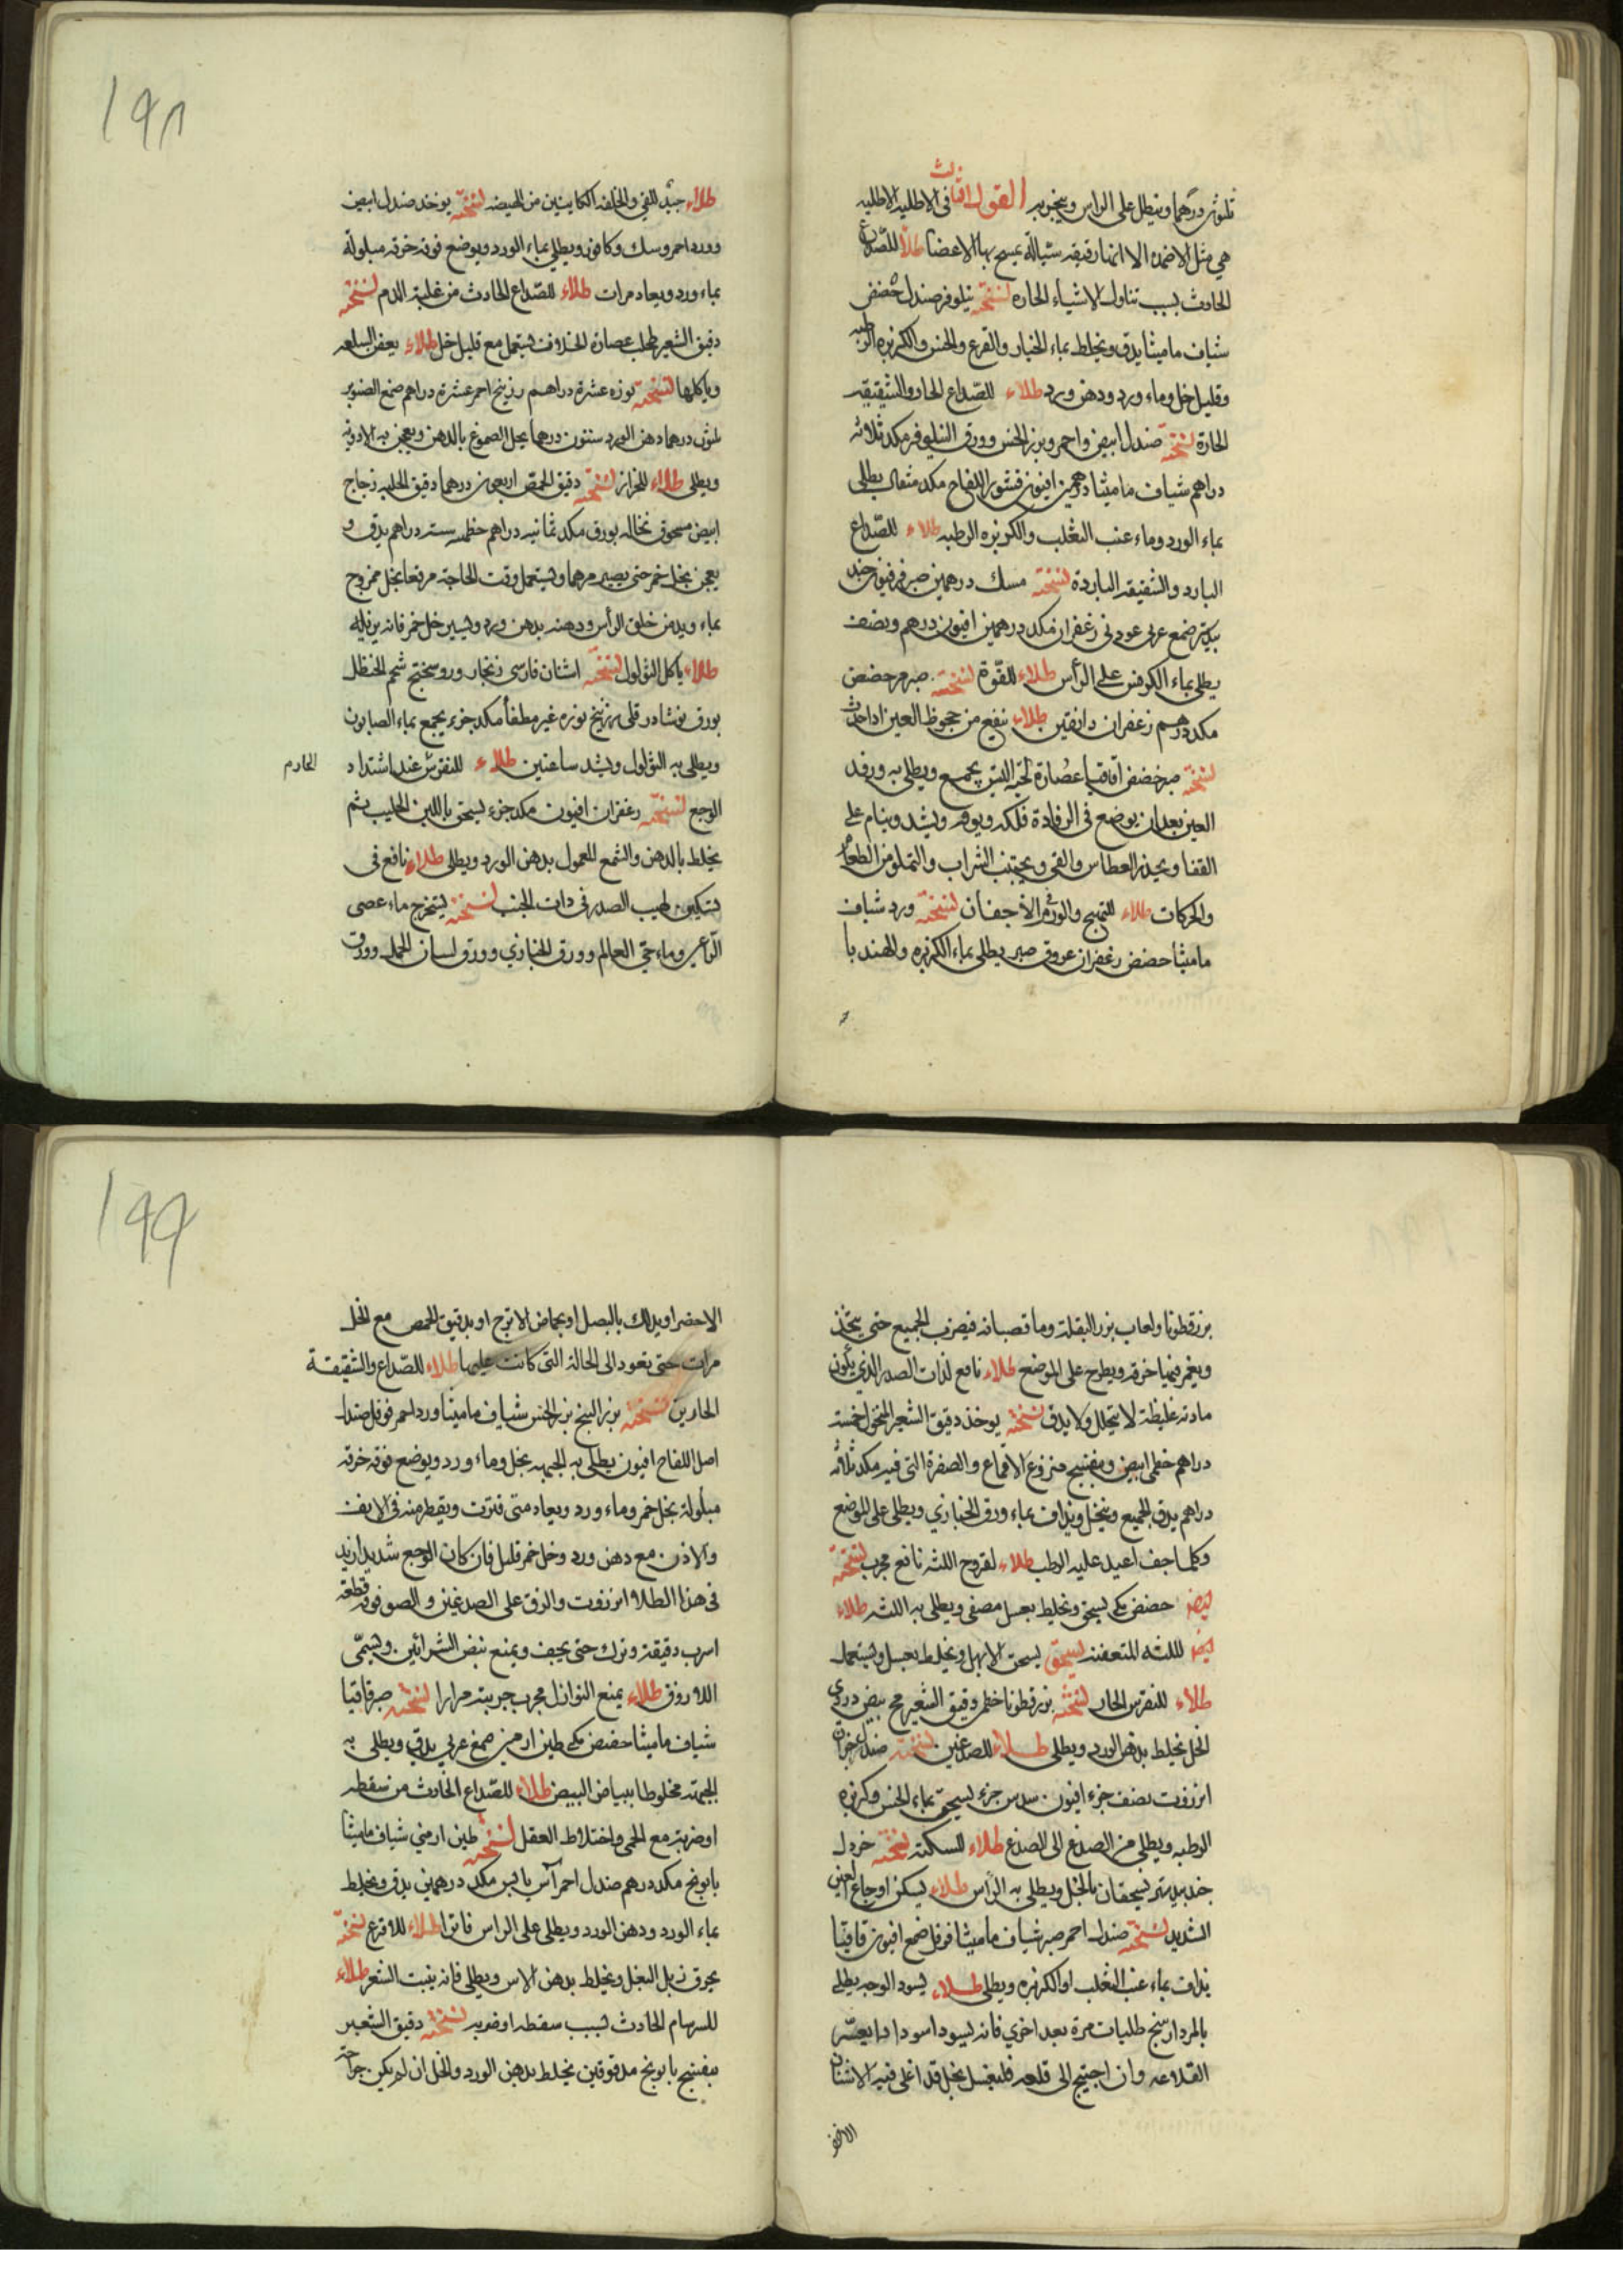 ثلثون درهما ويطلى على الراس ويبخر به القول الثالث في الاطلية الاطلية
هي مثل الاضمده الا انها رقيقه سيالة يمسح بها الاعضا طلاء للصداع
الحادث بسبب تناول الاشياء الحاره نسخته نيلوفر صندل حضض
شياف ماميثا يدق ويخلط بماء الخيار والقرع والخس والكزبره الرطبه
وقليل خل وماء ورد ودهن ورد طلاء للصداع الحار والشقيقه
الحارة نسخته صندل ابيض واحمر وبزر الخس وورق النيلوفر مكد ثلاثه
دراهم شياف ماميثا درهمين افيون قشور اللفاح مكد مثقال يطلى
بماء الورد وماء عنب الثعلب والكزبره الرطبه طلاء للصداع
البارد والشقيقه الباردة نسخته مسك درهمين صبر فرفيون جند
بيدستر صمغ عربى عود نى زعفران مكد درهمين افيون درهم ونصف
يطلى بماء الكرفس على الرأس طلاء للقوة نسخته صبر مر حضض
مكد درهم زعفران دانقين طلاء ينفع من جحوظ العين اذا حدث
نسخته صبر حضض اقاقيا عصارة لحية التيس يجمع ويطلى به ورفد
العين بعد ان يوضع فى الرفادة فلكه ويشد وينام على
القفا ويحذر العطاس والقى ويجتنب الشراب والتملو من الطعام
والحركات طلاء للتهيج والورم فى الاجفان نسخته ورد شياف
ماميثا حضض زعفران عروق صبر يطلى بماء الكزبره والهندبا
١٩٨
طلاء جيد للقى والخلفه الكاينين من الهيضه نسخته يوخذ صندل ابيض
وورد احمر وسك وكافور ويطلى بماء الورد ويوضع فوقه خرقه مبلولة
بماء ورد ويعاد مرات طلاء للصداع الحادث من غلبة الدم نسخته
دقيق الشعير طحلب عصارة الخلاف يستعمل مع قليل خل طلاء يعفن السلعه
وياكلها نسخته نوره عشرة دراهم زرنيخ احمر عشرة دراهم صمغ الصنوبر
ثلثون درهما دهن الورد ستون درهما يحل الصموغ بالدهن ويعجن به الادويه
ويطلى طلاء للحزاز نسخته دقيق الحمص اربعون درهما دقيق الحلبه زجاج
ابيض مسحوق نخاله بورق مكد ثمانيه دراهم خطمى سته دراهم يدق و
يعجن بخل خمر حتى يصير مرهما ويستعمل وقت الحاجة مرفعا بخل ممزوج
بماء ويدهن حلق الرأس ودهنه بدهن ورد ويسير خل خمر فانه يزيله
طلاء ياكل الثولول نسخته اشنان فارسى زنجار وروسختج شحم الحنظل
بورق نوشادر قلى زرنيخ نوره غير مطفأ مكد جزء يجمع بماء الصابون
ويطلى به الثولول ويشد ساعتين طلاء للنقرس عند اشتداد
الحادم
الوجع نسخته زعفران افيون مكد جزء يسحق باللبن الحليب ثم
يخلط بالدهن والشمع المعمول بدهن الورد ويطلى طلاء نافع فى
تسكين لهيب الصدر فى ذات الجنب نسخته يستخرج ماء عصى
الراعى وماء حى العالم وورق الخبازي وورق لسان الحمل وورق
بزر قطونا ولعاب بزر البقلة وما قصبانه فيضرب الجميع حتى يتخذ
ويغمر فيها خرقه ويطرح على الموضع طلاء نافع لذات الصدر الذي يكون
مادته غليظة لا يتحلل ولا يدق نسخته يوخذ دقيق الشعير المنخول خمسة
دراهم خطمى ابيض وبنفسج منزوع الاقماع والصفرة التى فيه مكد ثلاثه
دراهم يدق الجميع وينخل ويذاف بماء ورق الخبازي ويطلى على الموضع
وكلما جف اعيد عليه الرطب طلاء لقروح اللثه نافع مجرب نسخته
ايضا حضض مكى يسحق ويخلط بعسل مصفى ويطلى به اللثه طلاء
ايضا لللثه المتعفنه نسخته يسحق الابهل ويخلط بعسل ويستعمل
طلاء للنقرس الحار نسخته بزر قطونا خطمى دقيق الشعير مح بيض دردى
الخل يخلط بدهن الورد ويطلى طلاء للصدغين نسخته صندل جزان
انزروت نصف جزء افيون سدس جزء يسحق بماء الخس وكزبره
الرطبه ويطلى من الصدغ الى الصدغ طلاء للسكته نسخته خردل
جندبيدستر يسحقان بالخل ويطلى به الرأس طلاء يسكن اوجاع العين
الشديد نسخته صندل احمر صبر شياف ماميثا فوفل صمغ افيون قاقيا
يذاف بماء عنب الثعلب او الكزبره ويطلى طلاء يسود الوجه يطلى
بالمردارسنج طليات مرة بعد اخرى فانه يسود اسودادا يعسر
القلاعه وان احتيج الى قلعه فليغسل بخل قد اغلى فيه الاشنان
الاخضر
١٩٩
الاخضر او يدلك بالبصل او بحماض الاترج او بدقيق الحمص مع الخل
مرات حتى تعود الى الحالة التى كانت عليها طلاء للصداع والشقيقة
الحارين نسخته بزر البنج بزر الخس شياف ماميثا ورد احمر فوفل صندل
اصل اللفاح افيون يطلى به الجبهه بخل وماء ورد ويوضع فوقه خرقه
مبلولة بخل خمر وماء ورد ويعاد متى فترت ويقطر منه فى الانف
والاذن مع دهن ورد وخل خمر قليل فان كان الوجع شديدا زيد
فى هذا الطلاء انزروت والزق على الصدغين والصق فوقه قطعه
اسرب دقيقة وترك حتى يجف ويمنع نبض الشرائين ويسمى
اللازوق طلاء يمنع النوازل مجرب جربته مرارا نسخته صبر قاقيا
شياف ماميثا حضض مكى طين ارمنى صمغ عربي يدق ويطلى به
الجبهة مخلوطا ببياض البيض طلاء للصداع الحادث من سقطه
او ضربة مع الحمى واختلاط العقل نسخته طين ارمني شياف ماميثا
بابونج مكد درهم صندل احمر آس يابس مكد درهمين يدق ويخلط
بماء الورد ودهن الورد ويطلى على الراس فاترا طلاء للاقرع نسخته
يحرق زبل البغل ويخلط بدهن الاس ويطلى فانه ينبت الشعر طلاء
للسرسام الحادث بسبب سقطه او ضربه نسخته دقيق الشعير
بنفسج بابونج مدقوقين يخلط بدهن الورد والخل ان لم يكن جراحة